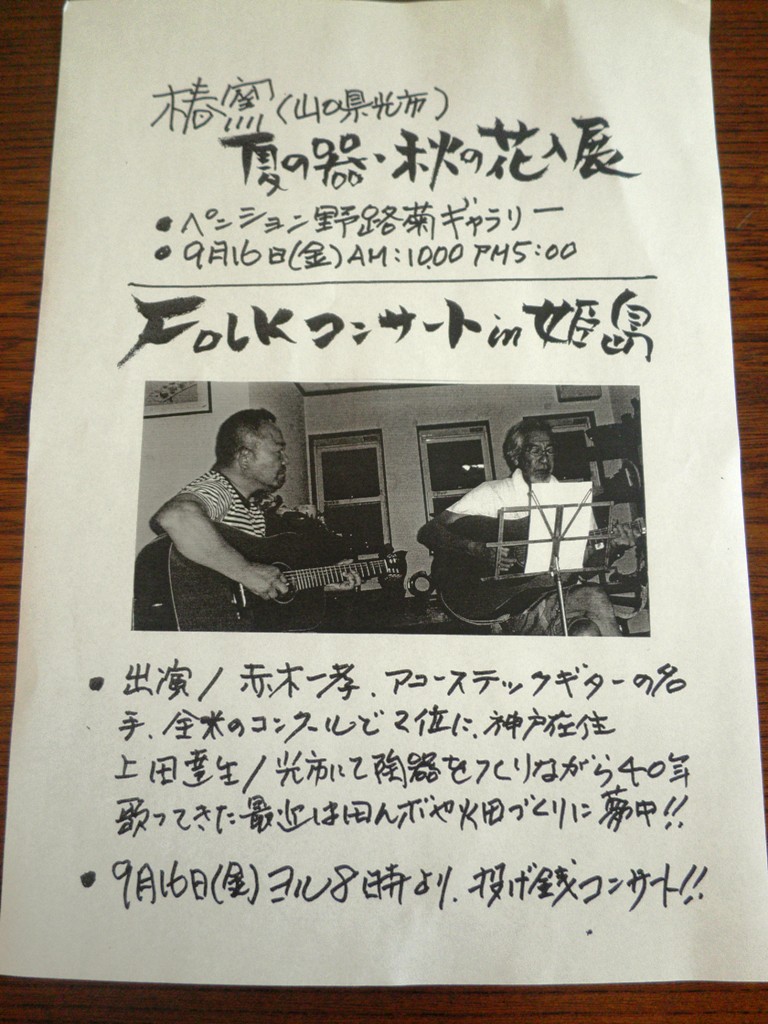 椿窯(山口県光市)
夏の器・秋の花入展
• ペンション野路菊ギャラリー
• 9月16日(金)AM:10.00 PM5:00
FOLKコンサートin姫島
• 出演/赤木一孝.アコーステックギターの名
手.全米のコンクールで2位に.神戸在住
上田達生/光市にて陶器をつくりながら40年
歌ってきた最近は田んボや火田づくりに夢中!!
• 9月16日(金)ヨル8時より.投げ銭コンサート!!